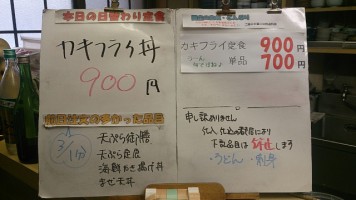 本日の日替わり定食
カキフライ丼
900円
前回注文の多かった品目
3/1分
天ぷら御膳
天ぷら定食
海鮮かき揚げ丼
まぜ天丼
カキフライ定食 900円
単品 700円
申し訳ありません
仕入、仕込の都合により
下記品目は終了します
・うどん ・刺身